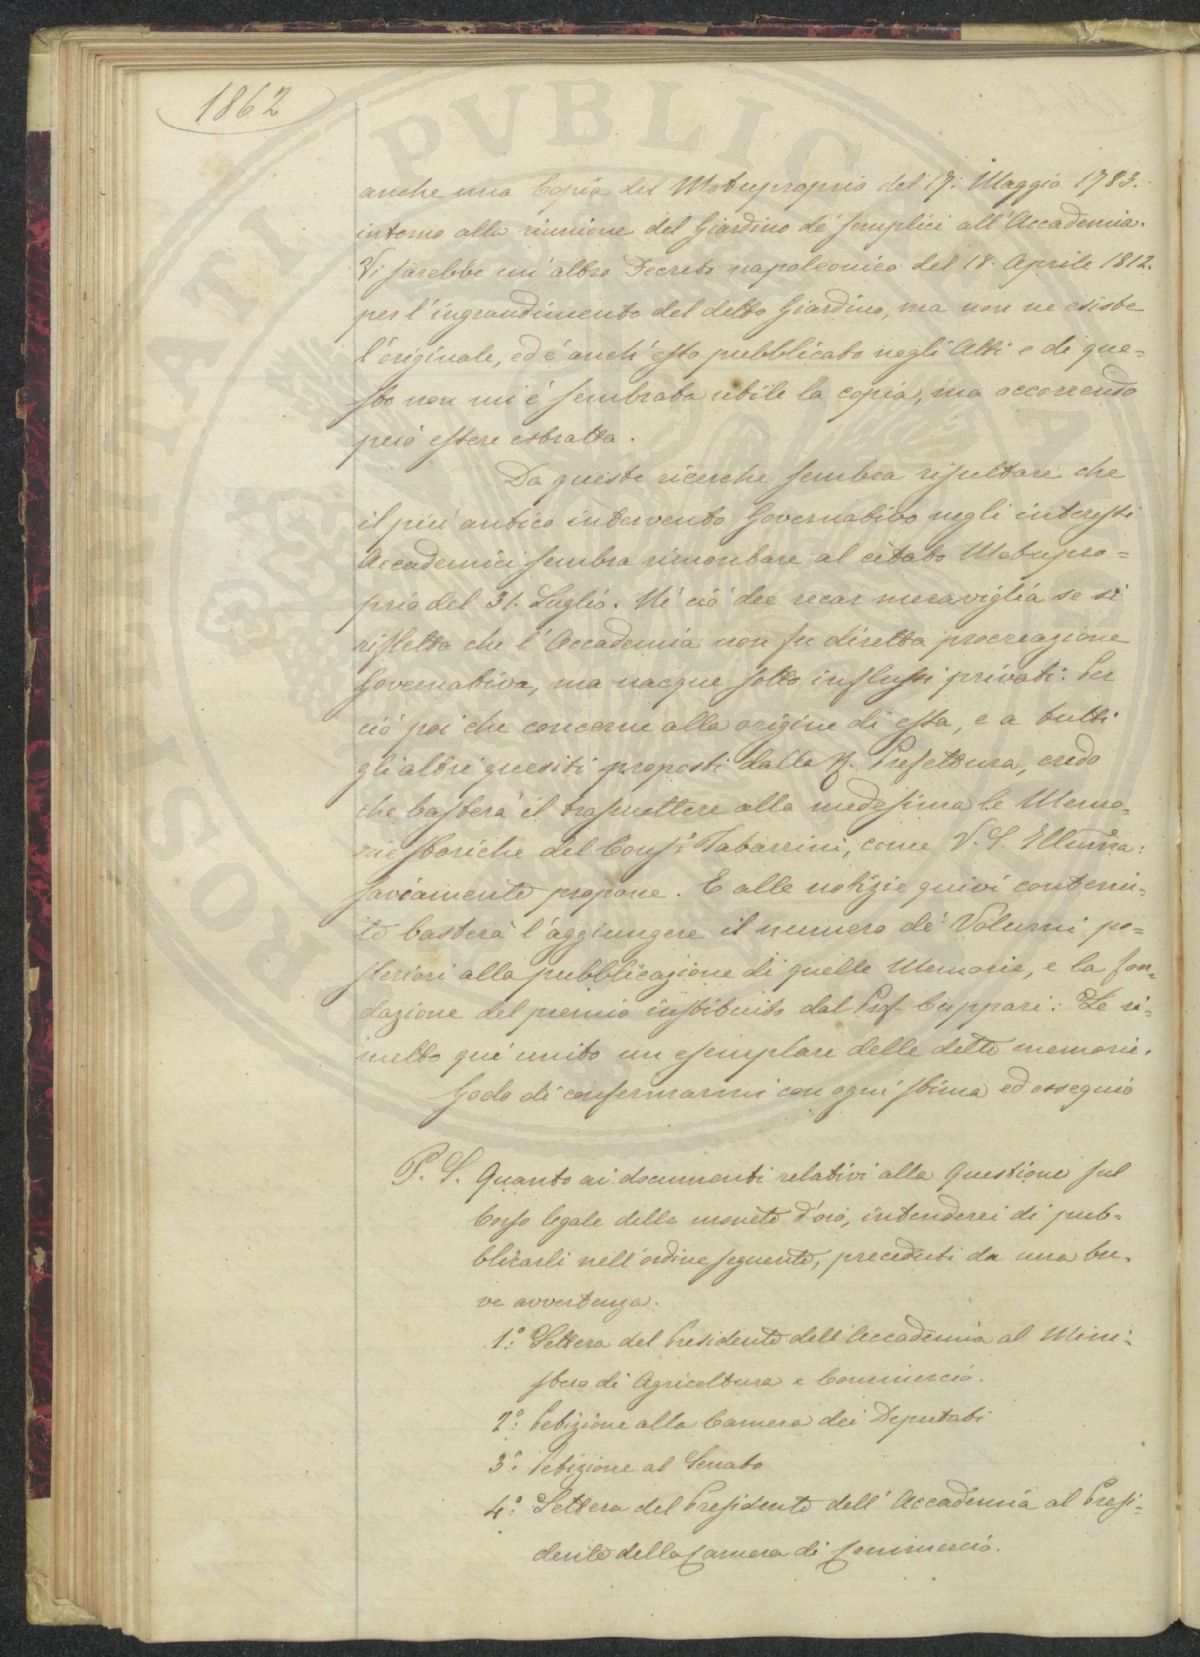 1862
anche una Copia del Motuproprio del 17. Maggio 1783.
intorno alla riunione del Giardino de' Semplici all'Accademia.
Vi sarebbe un'altro Decreto napoleonico del 18. Aprile 1812.
per l'ingrandimento del detto Giardino, ma non ne esiste
l'originale, ed è anch'esso pubblicato negli Atti e di que=
sto non mi è sembrata utile la copia, ma occorrendo
può essere estratta.
Da queste ricerche sembra risultare che
il più antico intervento Governativo negli interessi
Accademici sembra rimontare al citato Motupro=
prio del 31. Luglio. Nè ciò dee recar meraviglia se si
rifletta che l'Accademia non fu diretta procreazione
Governativa, ma nacque sotto influssi privati: Per
ciò poi che concerne alla origine di essa, e a tutti
gli altri quesiti proposti dalla R. Prefettura, credo
che basterà il trasmettere alla medesima le Memo=
rie storiche del Cons.e Tabarrini, come V. S. Ellma:
saviamente propone. E alle notizie quivi contenu=
te basterà l'aggiungere il numero de' Volumi po=
steriori alla pubblicazione di quelle Memorie, e la fon=
dazione del premio instituito dal Prof. Cuppari: Le ri=
metto qui unito un esemplare delle dette memorie.
Godo di confermarmi con ogni stima ed ossequio
P. S. Quanto ai documenti relativi alla Questione sul
Corso legale delle monete d'oro, intenderei di pub=
blicarli nell'ordine seguente, preceduti da una bre=
ve avvertenza.
1.° Lettera del Presidente dell'Accademia al Mini=
stero di Agricoltura e Commercio.
2.° Petizione alla Camera dei Deputati
3.° Petizione al Senato
4.° Lettera del Presidente dell'Accademia al Presi=
dente della Camera di Commercio.
ROSTAT
PVBLIC